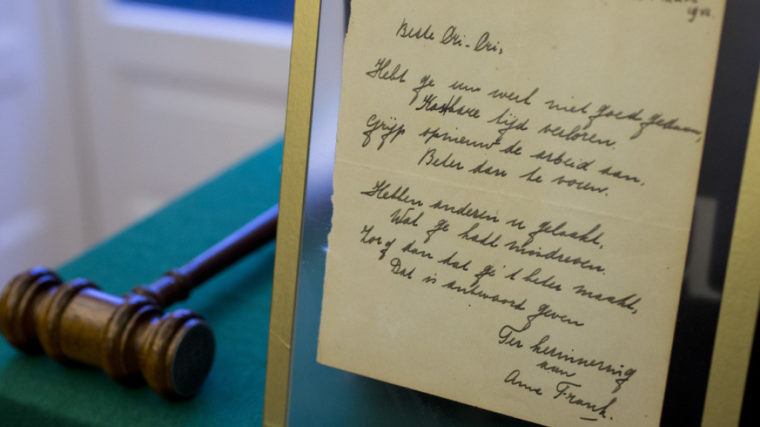 Beste Cri-Cri,
Hebt ge uw werk niet goed gedaan,
Kostbare tijd verloren,
Grijp opnieuw de arbeid aan,
Beter dan te voren.
Hebben anderen u gelaakt,
Wat ge hadt misdreven.
Zorg dan dat ge 't beter maakt,
Dat is antwoord geven
Ter herinnering
aan
Anne Frank.